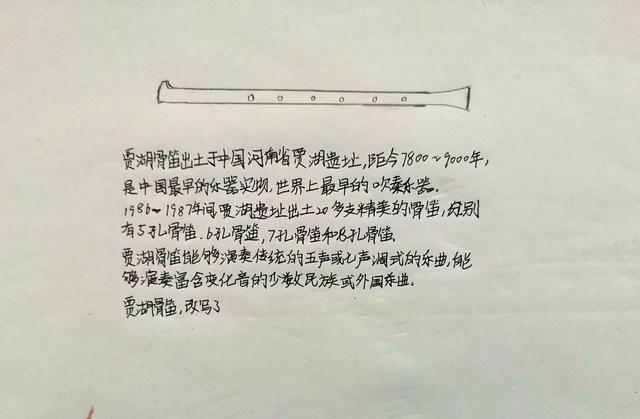 贾湖骨笛出土于中国河南省贾湖遗址,距今7800~9000年,
是中国最早的乐器实物,世界上最早的吹奏乐器.
1986~1987年间,贾湖遗址出土20多支精美的骨笛,分别
有5孔骨笛、6孔骨笛,7孔骨笛和8孔骨笛.
贾湖骨笛能够演奏传统的五声或七声调式的乐曲,能
够演奏富含变化音的少数民族或外国乐曲。
贾湖骨笛,改写了